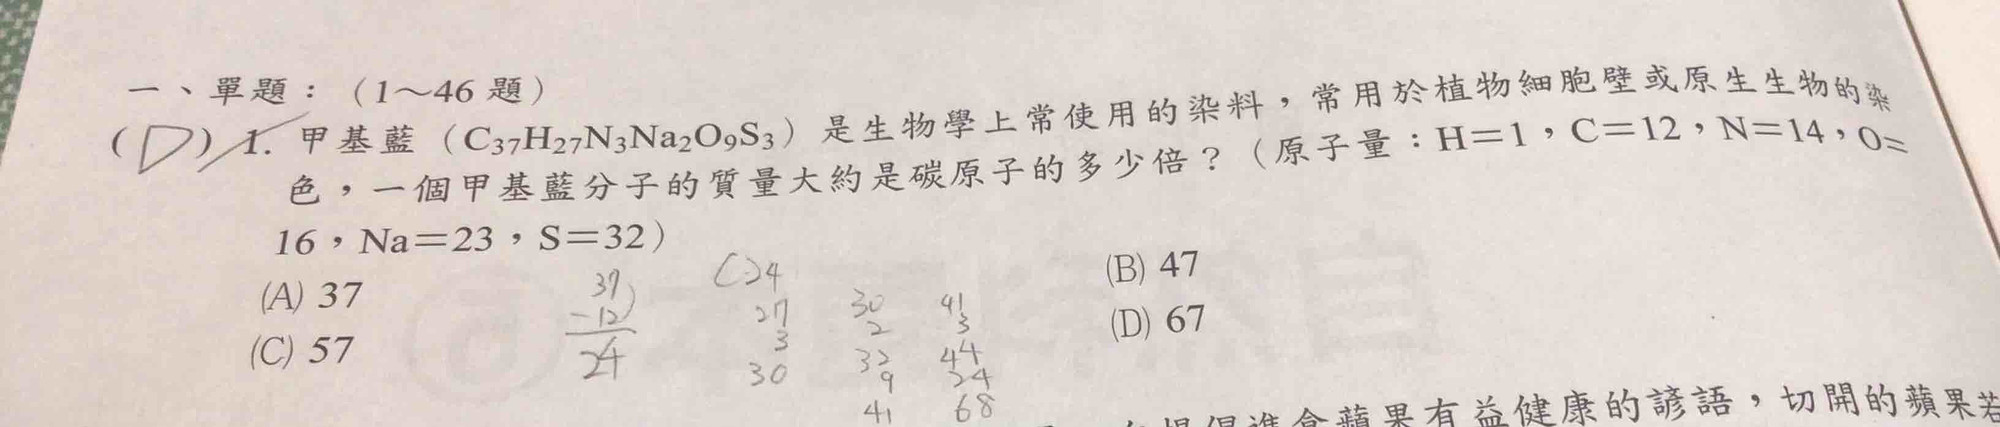 一、單題：（1～46 題）
(D) 1. 甲基藍（C37H27N3Na2O9S3）是生物學上常使用的染料，常用於植物細胞壁或原生生物的染
色，一個甲基藍分子的質量大約是碳原子的多少倍？（原子量：H＝1，C＝12，N＝14，O＝
16，Na＝23，S＝32）
(A) 37
(B) 47
(C) 57
(D) 67
37
-12
24
24
27
3
30
30
2
32
9
41
41
3
44
24
68
食蘋果有益健康的諺語，切開的蘋果若